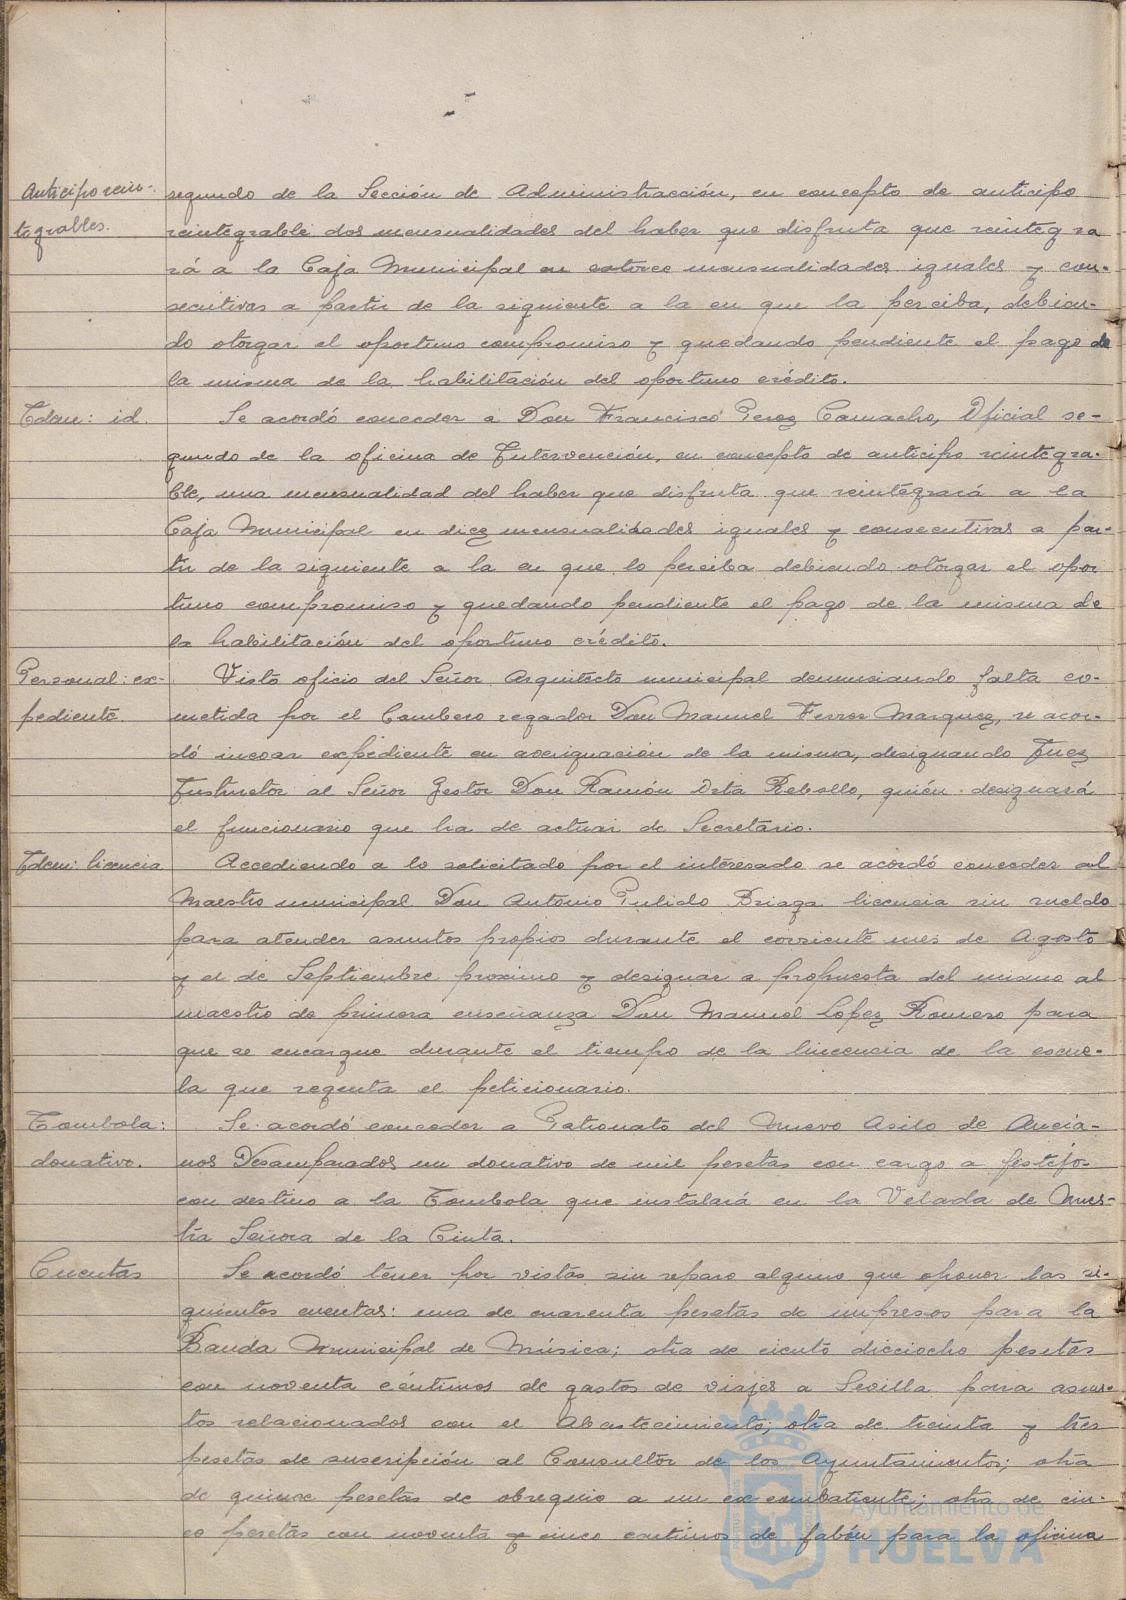 Anticipo rein-
tegrables.
segundo de la Sección de Administracción, en concepto de anticipo
reintegrable dos mensualidades del haber que disfruta que reintegra
rá a la Caja Municipal en catorce mensualidades iguales y con-
secutivas a partir de la siguiente a la en que la perciba, debien-
do otorgar el oportuno compromiso y quedando pendiente el pago de
la misma de la habilitación del oportuno crédito.
Idem: id.
Se acordó conceder a Don Francisco Perez Camacho, Oficial se-
gundo de la oficina de Intervención, en concepto de anticipo reintegra-
ble, una mensualidad del haber que disfruta que reintegrará a la
Caja Municipal en diez mensualidades iguales y consecutivas a par-
tir de la siguiente a la en que lo perciba debiendo otorgar el opor
tuno compromiso y quedando pendiente el pago de la misma de
la habilitación del oportuno crédito.
Personal: ex-
pediente.
Visto oficio del Señor Arquitecto municipal denunsiando falta co-
metida por el Bombero regador Don Manuel Ferrer Marquez, se acor-
dó incoar expediente en averiguación de la misma, designando Juez
Instructor al Señor Gestor Don Ramón Orta Rebollo, quién designará
el funcionario que ha de actuar de Secretario.
Idem: licencia
Accediendo a lo solicitado por el interesado se acordó conceder al
Maestro municipal Don Antonio Pulido Briaga licencia sin sueldo
para atender asuntos propios durante el corriente mes de Agosto
y el de Septiembre proximo y designar a propuesta del mismo al
maestro de primera enseñanza Don Manuel Lopez Romero para
que se encargue durante el tiempo de la lincencia de la escue-
la que regenta el peticionario.
Tombola:
donativo.
Se acordó conceder a Patronato del Nuevo Asilo de Ancia-
nos Desamparados un donativo de mil pesetas con cargo a festejos
con destino a la Tombola que instalará en la Velada de Nues-
tra Señora de la Cinta.
Cuentas
Se acordó tener por vistas sin reparo alguno que oponer las si-
guientes cuentas: una de cuarenta pesetas de impresos para la
Banda Municipal de Música; otra de ciento dieciocho pesetas
con noventa céntimos de gastos de viajes a Sevilla para asun-
tos relacionados con el Abastecimiento; otra de treinta y tres
pesetas de suscripción al Consultor de los Ayuntamientos; otra
de quince pesetas de obsequio a un ex-combatiente; otra de cin-
co pesetas con noventa y cinco centimos de jabón para la oficina
Ayuntamiento de
HUELVA